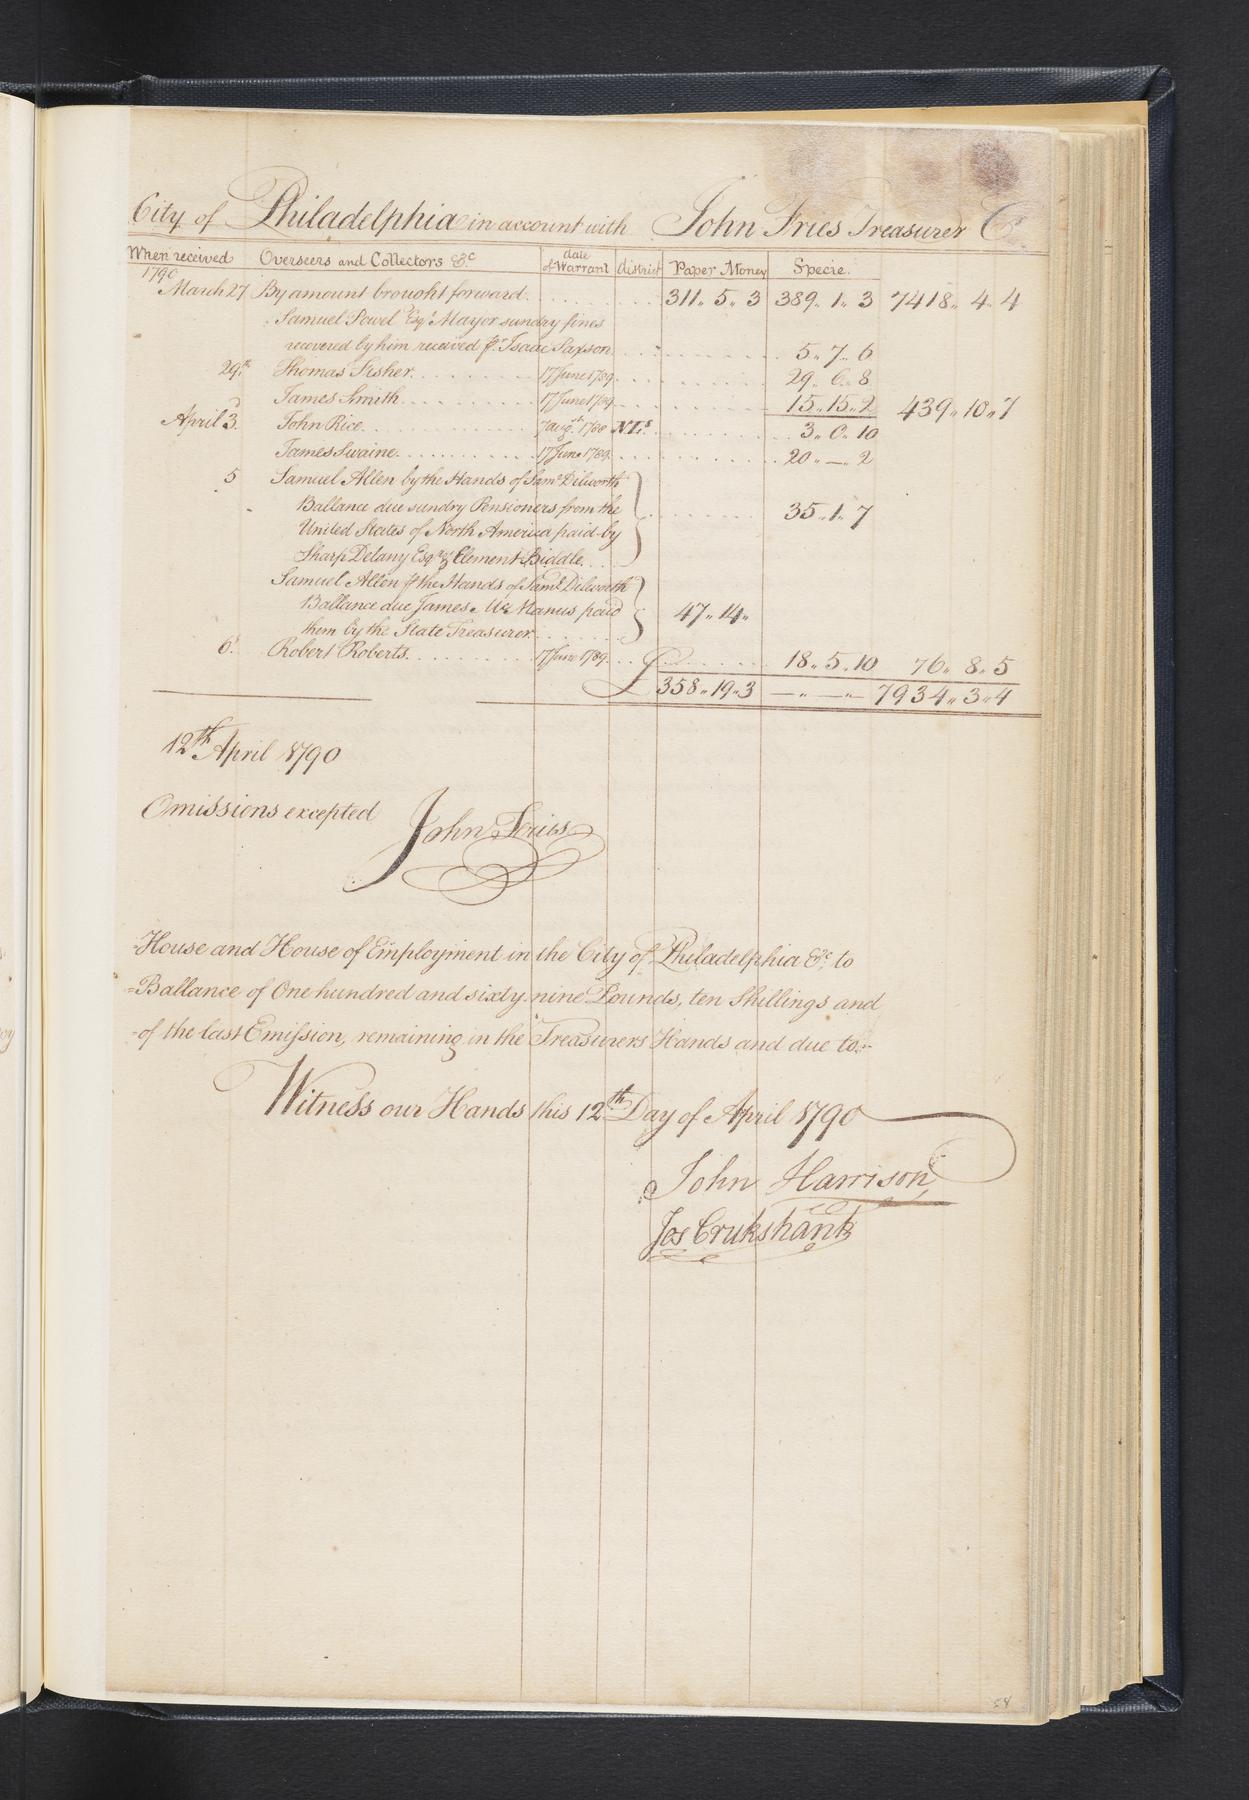 City of Philadelphia in account with John Fries Treasurer Cr
When received Overseers and Collectors &c date of Warrant district Paper Money Specie
1790
March 27 By amount brought forward 311,, 5,, 3 389,, 1,, 3 7418,, 4,, 4
Samuel Powel Esqr Mayor sundry fines
recovered by him received pr Isaac Paxson 5,, 7,, 6
29th Thomas Fisher 17 June 1789 29,, 6,, 8
James Smith 17 June 1789 15,, 15,, 2 439,, 10,, 7
April 3d John Rice 7 augst 1788 N Ls 3,, 0,, 10
James Swaine 17 June 1789 20,, —,, 2
5 Samuel Allen by the Hands of Saml Dilworth
Ballance due sundry Pensioners from the 35,, 1,, 7
United States of North America paid by
Sharp Delany Esqr & Clement Biddle
Samuel Allen pr the Hands of Saml Dilworth
Ballance due James Mc Manus paid 47,, 14,,
them by the State Treasurer
6 Robert Roberts 17 June 1789 18,, 5,, 10 76,, 8,, 5
£ 358,, 19,, 3 —,, —,, 7934,, 3,, 4
12th April 1790
Omissions excepted John Fries
-House and House of Employment in the City of Philadelphia &c to
=Ballance of One hundred and sixty nine Pounds, ten Shillings and
-of the last Emission, remaining in the Treasurers Hands and due to
Witness our Hands this 12th Day of April 1790
John Harrison
Jos Crukshank